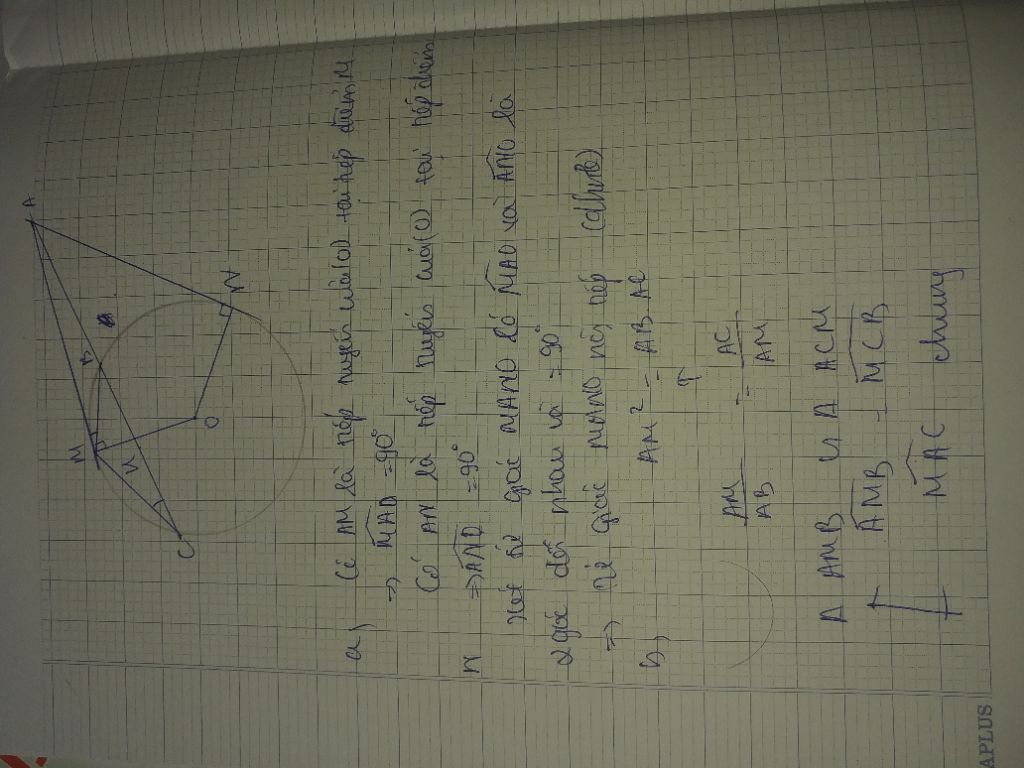 A
M
B
N
H
O
C
a, Có AM là tiếp tuyến của (O) tại tiếp điểm M
=> MAO = 90°
Có AN là tiếp tuyến của (O) tại tiếp điểm
N => ANO = 90°
Xét tứ giác MANO có MAO và ANO là
2 góc đối nhau và = 90°
=> tứ giác MANO nội tiếp (dhnb)
b, AM² = AB.AC
⇑
AM/AB = AC/AM
Δ AMB ∽ Δ ACM
AMB = MCB
MAC chung
APLUS